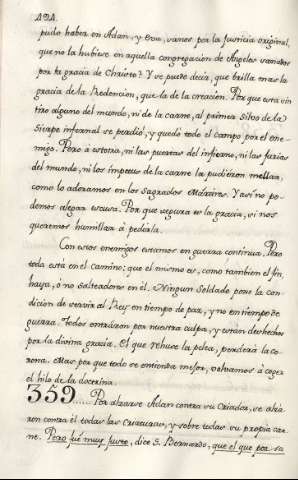 424.
pudo haber en Adan, y Eva, vanos por la Justicia original,
que no la hubiese en aquella congregacion de Angeles vanos
por la gracia de Christo? Y se puede decir, que brilla mas la
gracia de la Redencion, que la de la creacion. Porque esta sin
tiro alguno del mundo, ni de la carne, al primer silvo de la
Sierpe infernal se perdió, y quedó todo el campo por el ene-
migo. Pero a estotra, ni las puertas del infierno, ni las furias
del mundo, ni los impetus de la carne la pudieron mellar,
como lo adoramos en los Sagrados Mártires. Y asi no po-
demos alegar escusa. Porque segura es la gracia, si nos
queremos humillar à pedirla.
Con estos enemigos estamos en guerra continua. Pero
toda está en el camino; que el mismo es, como tambien el fin,
haya, ó no salteadores en él. Ningun Soldado pone la con-
dicion de servir al Rey en tiempo de paz, y no en tiempo de
guerra. Todos entráron por nuestra culpa, y están deshechos
por la divina gracia. El que rehuse la pelea, perderá la co-
rona. Mas por que todo se entienda mejor, volvamos à coger
el hilo de la doctrina.
359 Por alzarse Adan contra su Criador, se alzá-
ron contra él todas las Criaturas, y sobre todas su propia car-
ne. Pero fué muy justo, dice S. Bernardo, que el que por su